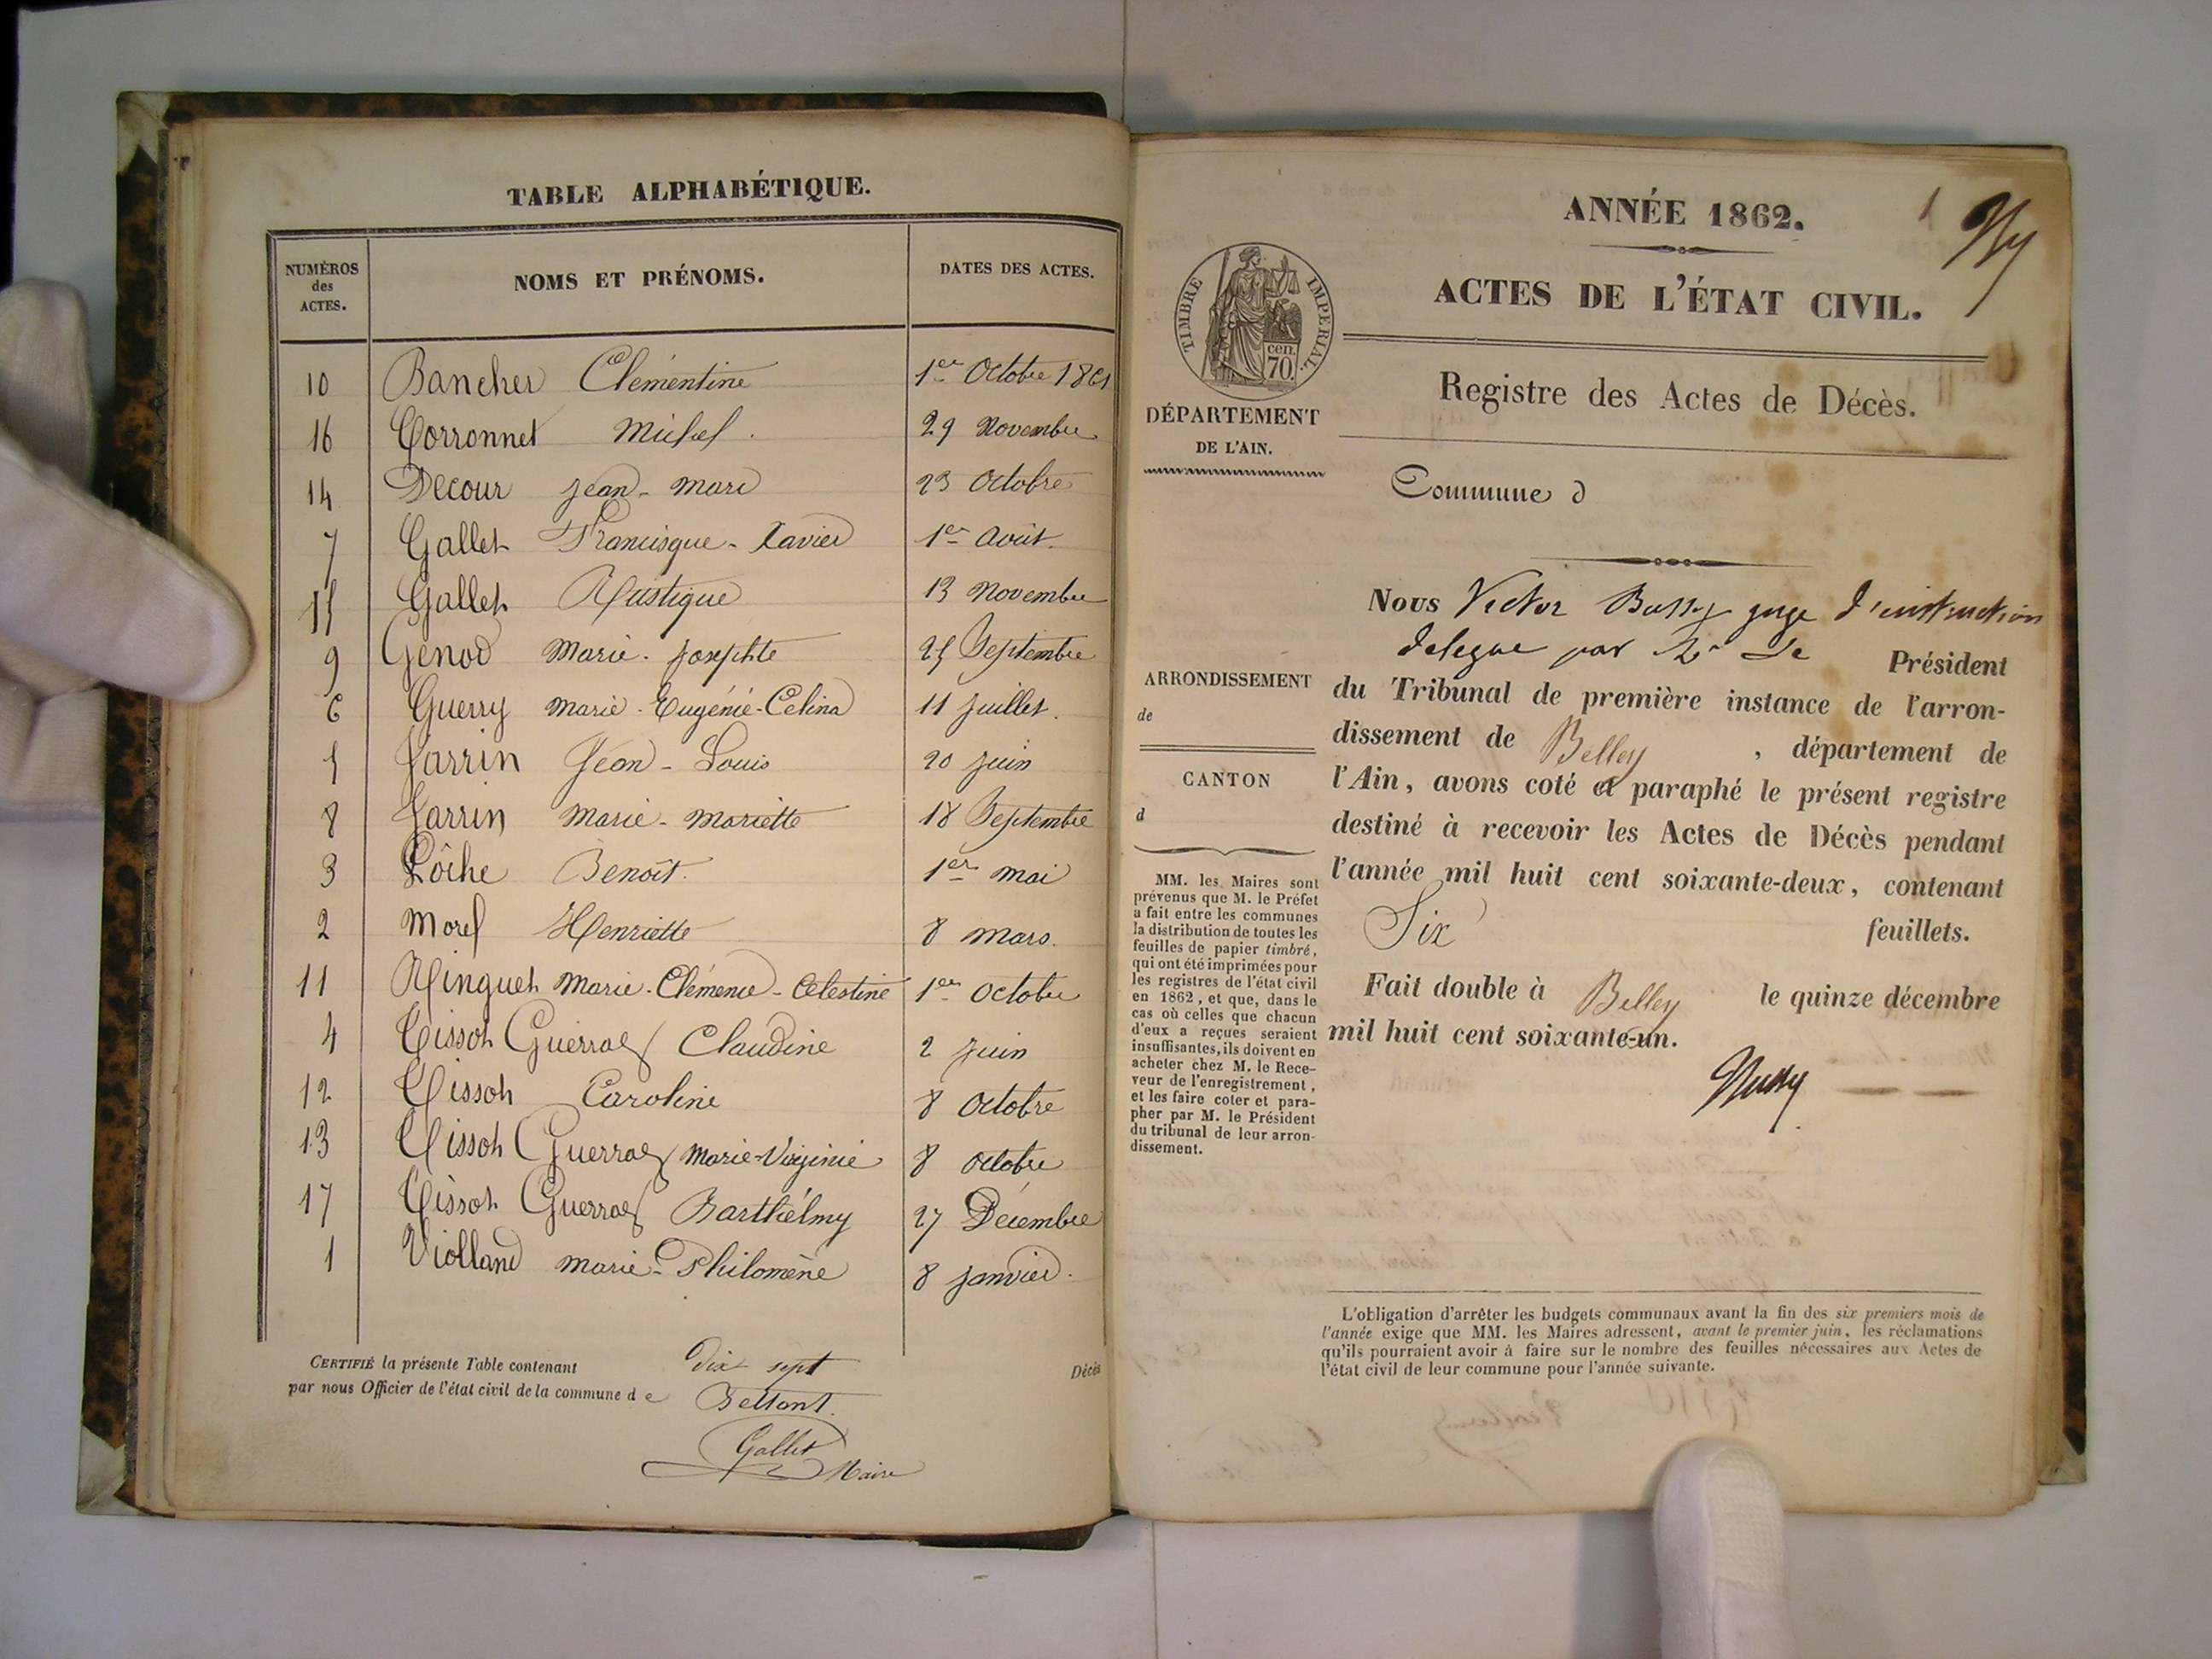 TABLE ALPHABÉTIQUE.
NUMÉROS des ACTES. NOMS ET PRÉNOMS. DATES DES ACTES.
10 Bancher Clémentine 1er Octobre 1861
16 Corronnet Michel. 29 Novembre
14 Decour Jean-Marc 23 Octobre
7 Gallet Francisque-Xavier 1er Août.
15 Gallet Rustique 13 Novembre
9 Genod Marie-Josephte 25 Septembre
6 Guerry Marie-Eugénie-Celina 11 Juillet.
5 Jarrin Jean-Louis 20 Juin
8 Jarrin Marie-Mariette 18 Septembre
3 Lôche Benoît. 1er Mai
2 Morel Henriette 8 Mars.
11 Ringuet Marie-Clémence-Célestine 1er Octobre
4 Tissot Guerraz Claudine 2 Juin
12 Tissot Caroline 8 Octobre
13 Tissot Guerraz Marie-Virginie 8 Octobre
17 Tissot Guerraz Barthélmy 27 Décembre
1 Violland Marie-Philomène 8 Janvier.
CERTIFIÉ la présente Table contenant dix sept Décès
par nous Officier de l'état civil de la commune de Bettant.
Gallet
Maire
1
ANNÉE 1862.
ACTES DE L'ÉTAT CIVIL.
TIMBRE IMPERIAL.
cen.
70.
DÉPARTEMENT
DE L'AIN.
Registre des Actes de Décès.
Commune d
ARRONDISSEMENT
de
CANTON
d
MM. les Maires sont
prévenus que M. le Préfet
a fait entre les communes
la distribution de toutes les
feuilles de papier timbré,
qui ont été imprimées pour
les registres de l'état civil
en 1862, et que, dans le
cas où celles que chacun
d'eux a reçues seraient
insuffisantes, ils doivent en
acheter chez M. le Rece-
veur de l'enregistrement,
et les faire coter et para-
pher par M. le Président
du tribunal de leur arron-
dissement.
Nous Victor juge d'instruction
delegue par Président
du Tribunal de première instance de l'arron-
dissement de Belley, département de
l'Ain, avons coté et paraphé le présent registre
destiné à recevoir les Actes de Décès pendant
l'année mil huit cent soixante-deux, contenant
Six feuillets.
Fait double à Belley le quinze décembre
mil huit cent soixante-un.
L'obligation d'arrêter les budgets communaux avant la fin des six premiers mois de
l'année exige que MM. les Maires adressent, avant le premier juin, les réclamations
qu'ils pourraient avoir à faire sur le nombre des feuilles nécessaires aux Actes de
l'état civil de leur commune pour l'année suivante.